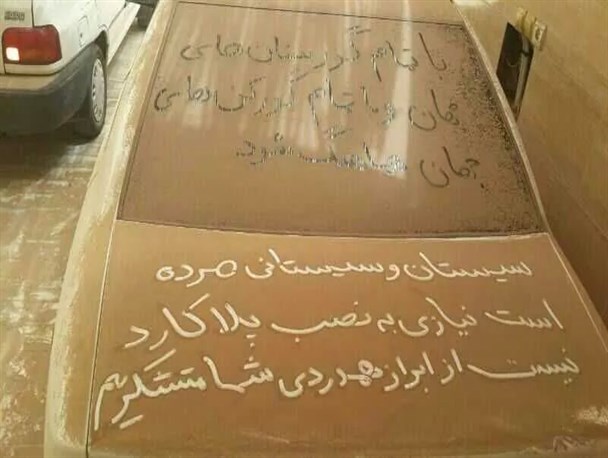 با تمام گورستان‌های
جهان و با تمام گورکن‌های
جهان هماهنگ شود
سیستان و سیستانی مرده
است نیازی به نصب پلاکارد
نیست از ابراز همدردی شما متشکریم